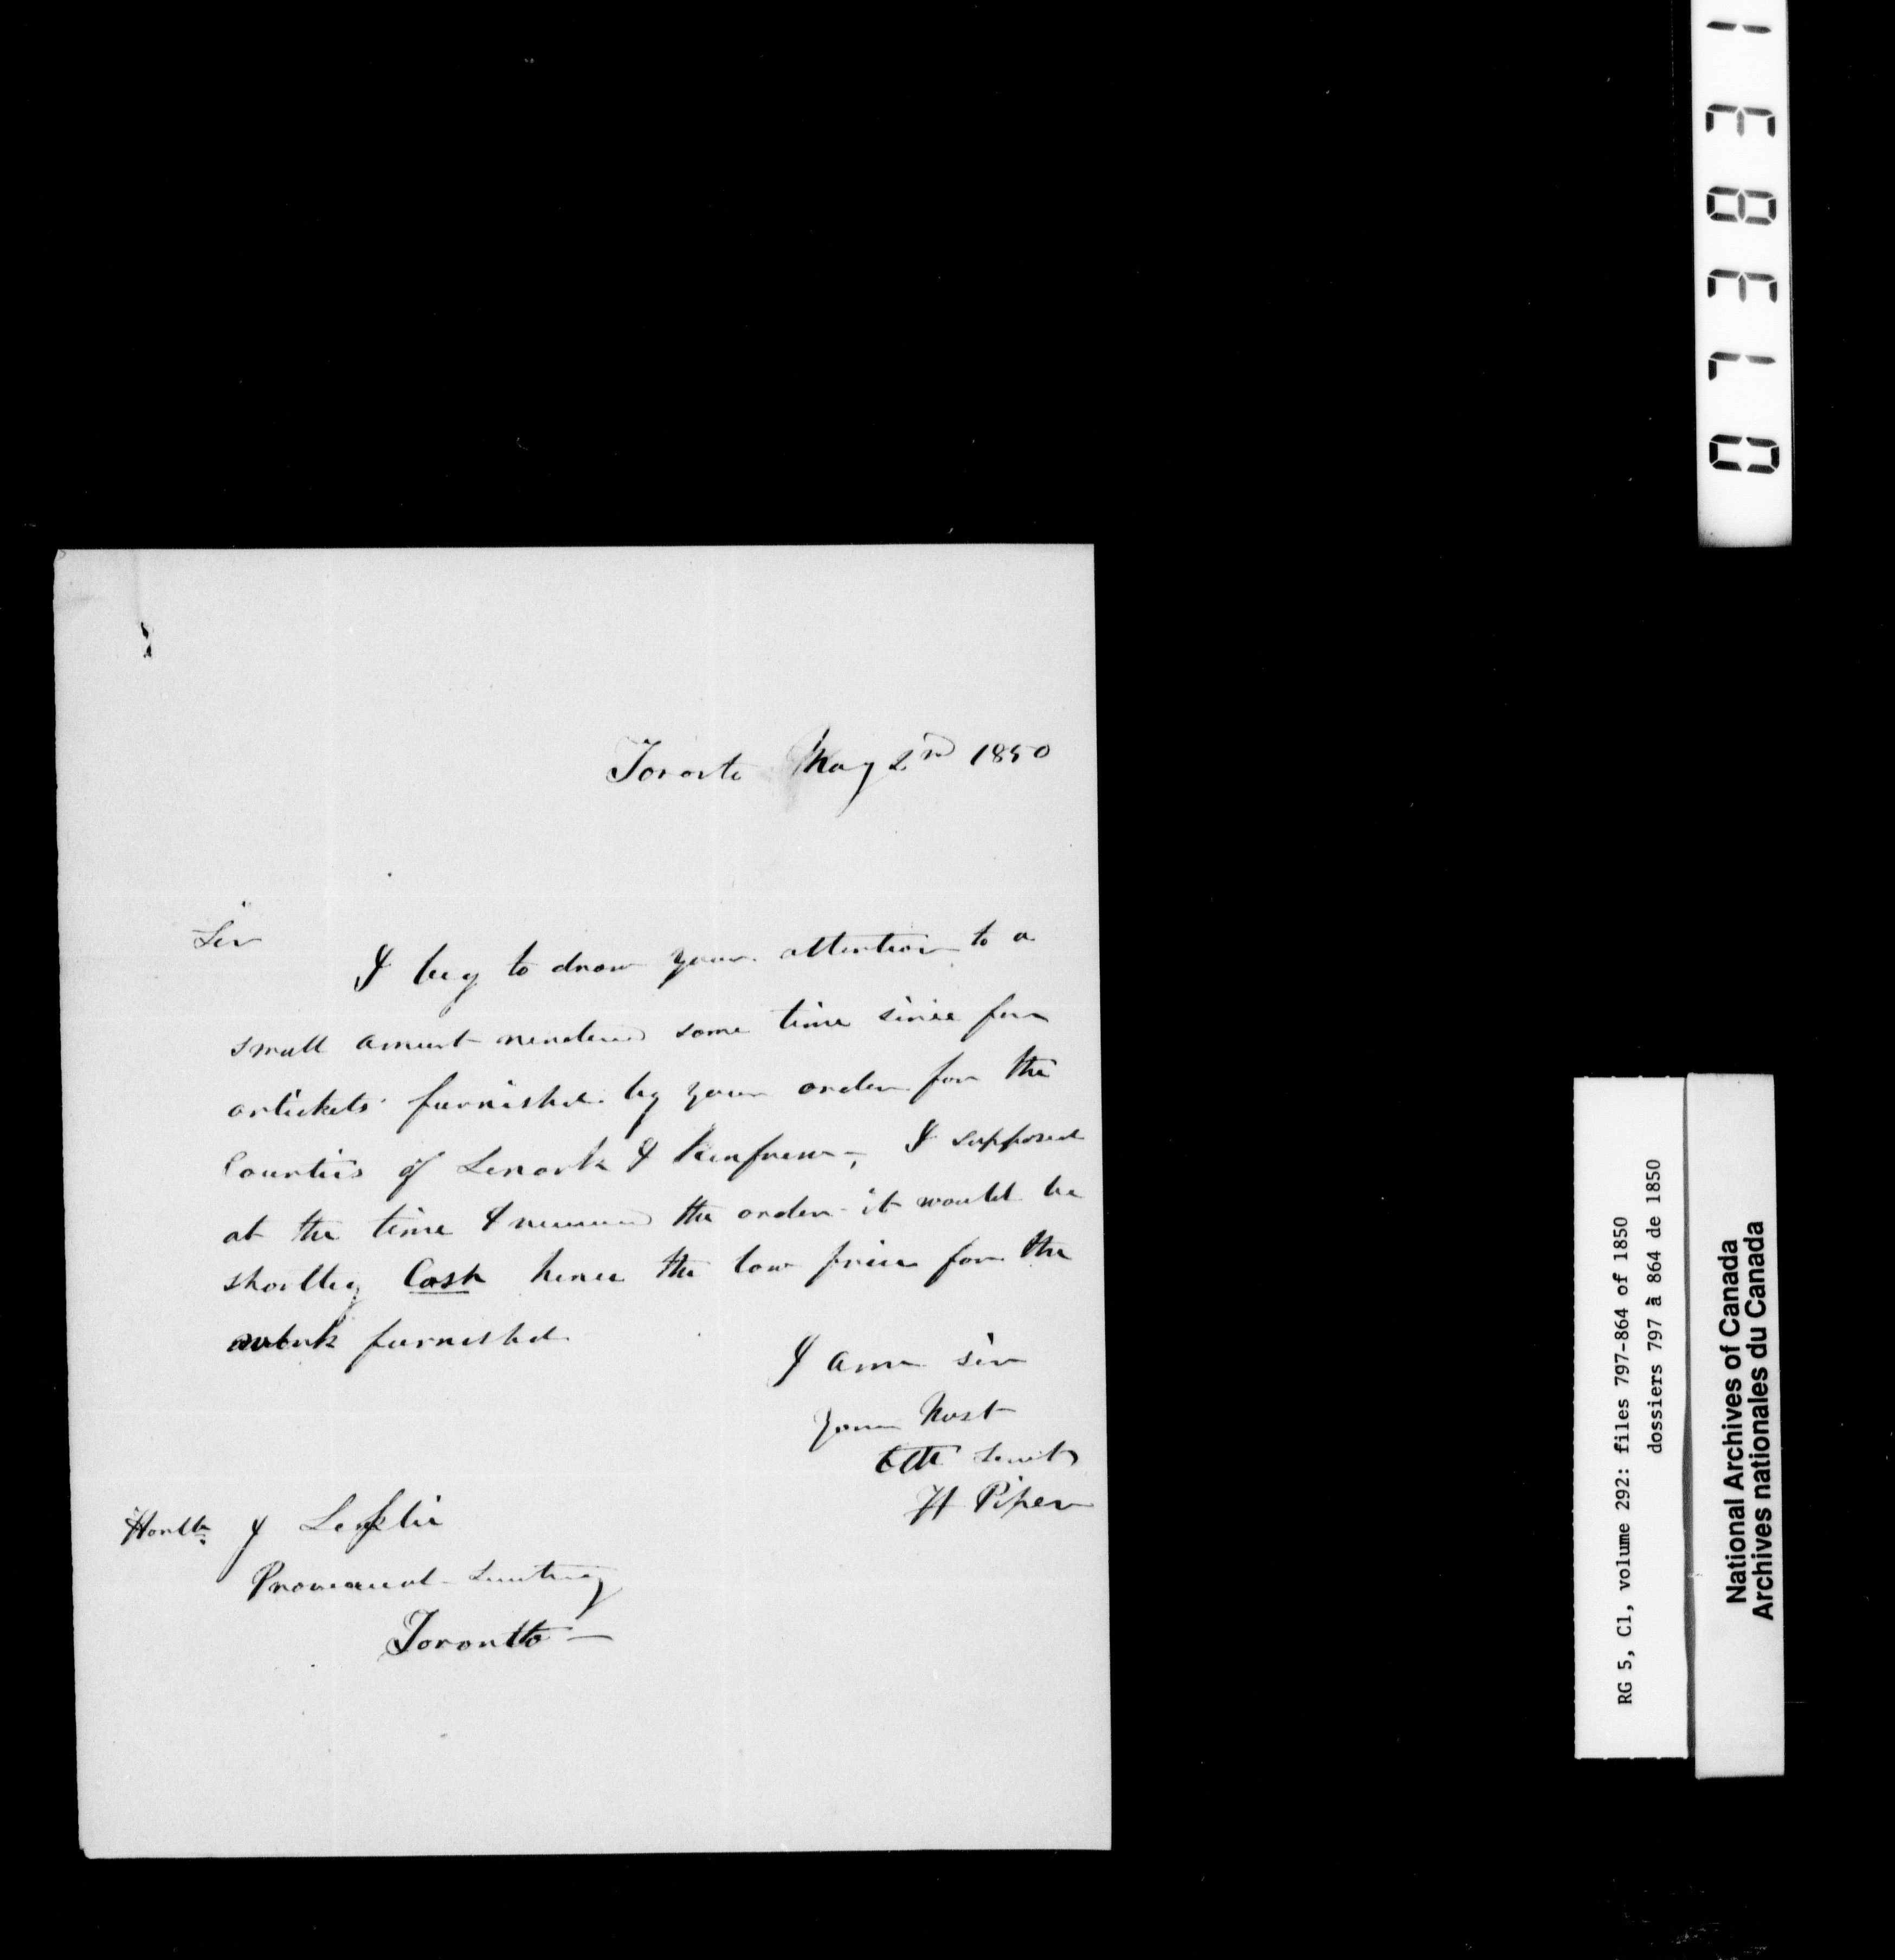 Toronto May 2nd 1850
Sir
I beg to draw your attention to a
small amount rendered some time since for
artickels furnished by your order for the
Counties of Lenark & Renfrew -, I supposed
at the time I received the order it would be
shortley Cash hence the low price for the
work furnished
I am sir
your Most
Obt Servt
H Piper
Honble J Lesslie
Provencial Secretary
Torontto —
013831
RG 5, C1, volume 292: files 797-864 of 1850
dossiers 797 à 864 de 1850
National Archives of Canada
Archives nationales du Canada